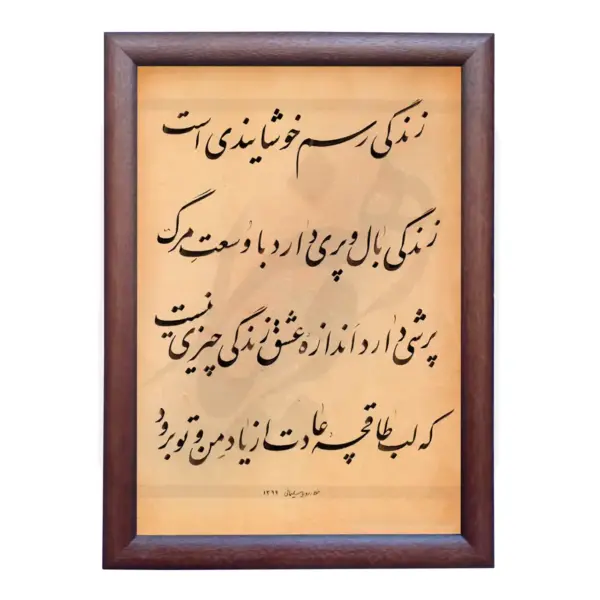 زندگی رسم خوشایندی است
زندگی بال و پری دارد با وسعت مرگ
پرشی دارد اندازهٔ عشق زندگی چیزی نیست
که لب طاقچه عادت از یاد من و تو برود
۱۳۹۹